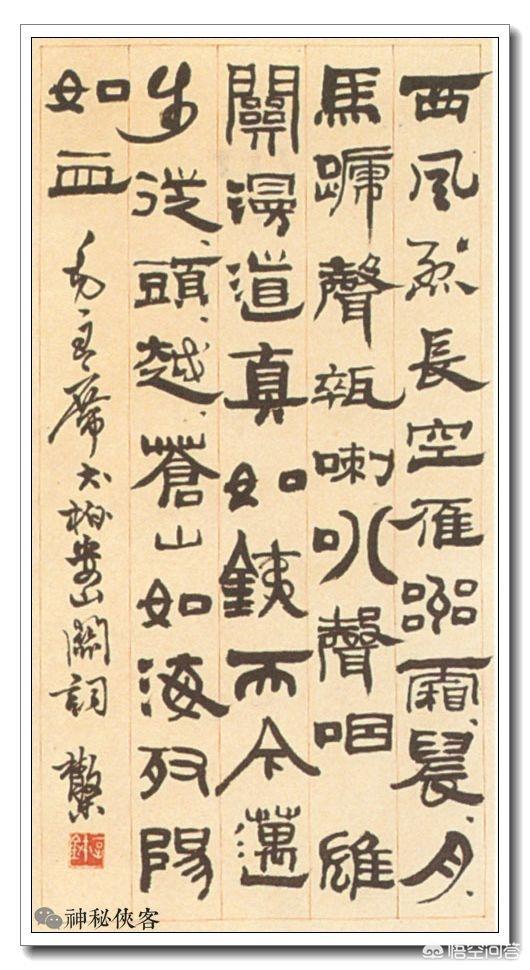 西風烈長空雁嘂霜、晨、月、
馬蹄聲碎喇叭聲咽雄
關漫道真如銕而今邁
步從、頭、越、蒼山如海殘陽
如血
毛主席婁山關詞
神秘俠客
悟空问答